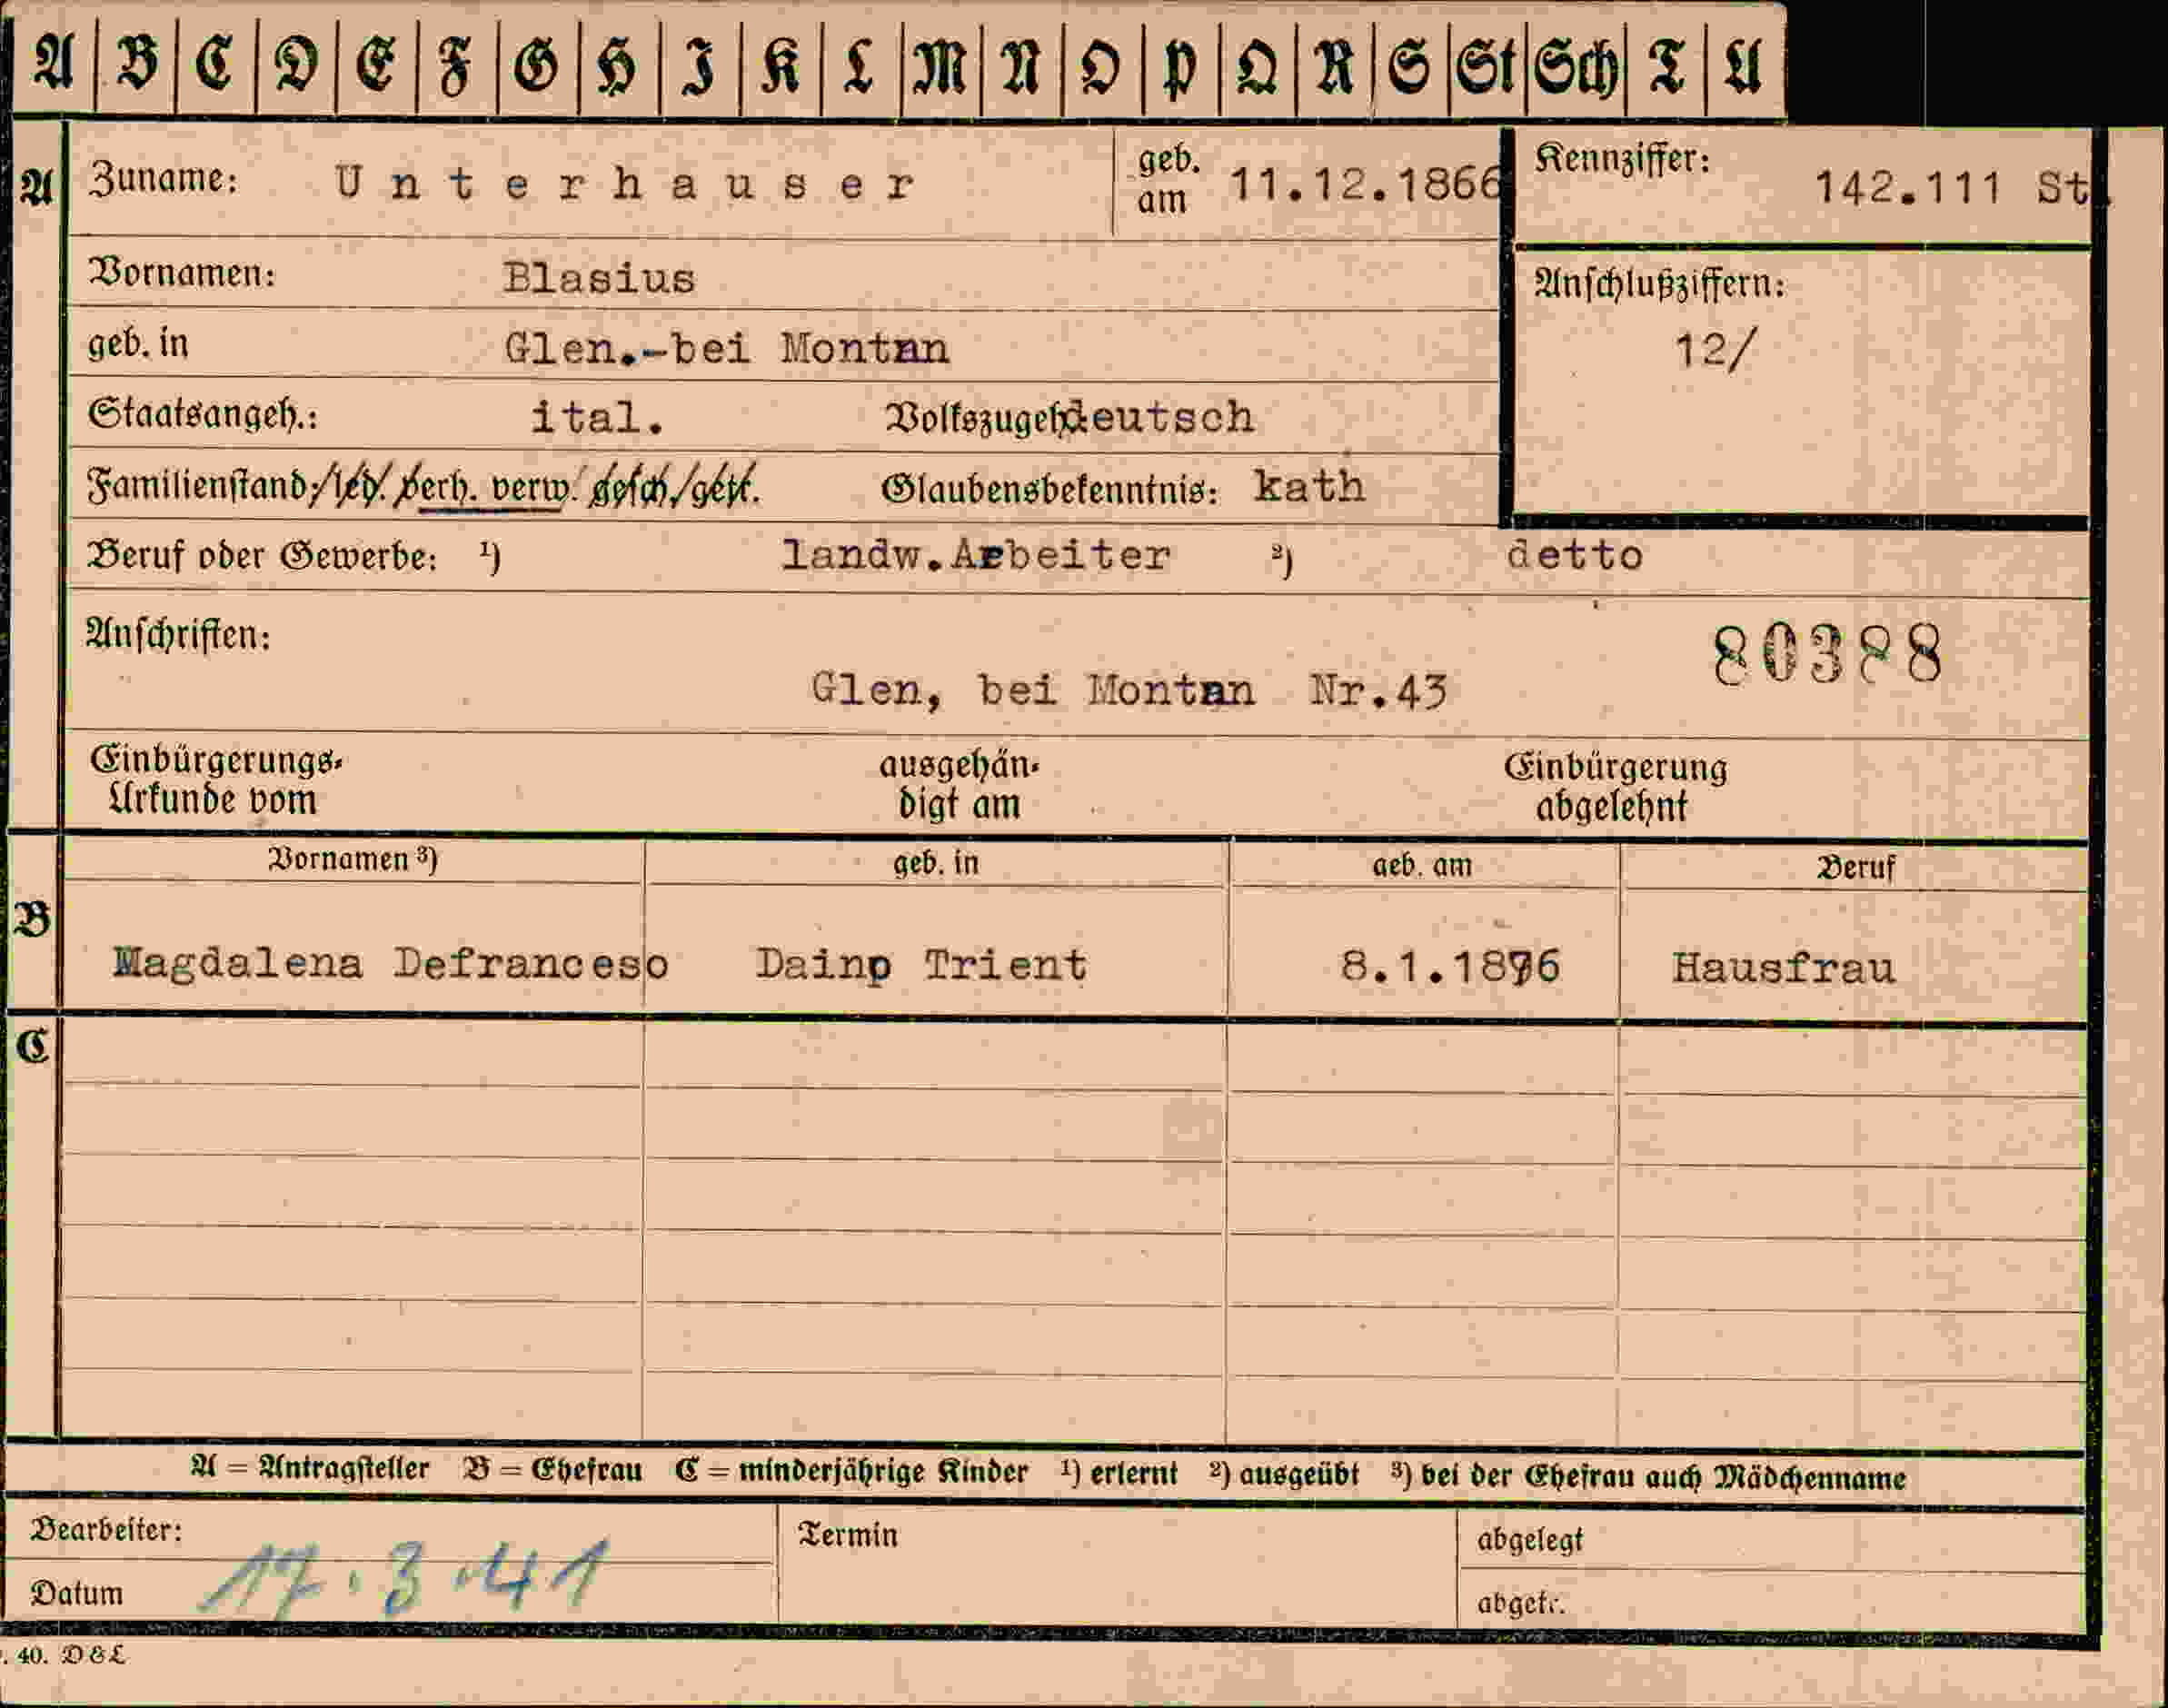 A B C D E F G H I K L M N O P Q R S St Sch T U
A Zuname: Unterhauser geb. am 11.12.1866 Kennziffer: 142.111 St.
Vornamen: Blasius Anschlußziffern:
geb. in Glen.-bei Montan 12/
Staatsangeh.: ital. Volkszugeh. deutsch
Familienstand: led. verh. verw. gesch./getr. Glaubensbekenntnis: kath
Beruf oder Gewerbe: ¹) landw.Arbeiter ²) detto
Anschriften: 80388
Glen, bei Montan Nr.43
Einbürgerungs- ausgehän- Einbürgerung
Urkunde vom digt am abgelehnt
Vornamen ³) geb. in geb. am Beruf
B
Magdalena Defranceso Trient 8.1.1876 Hausfrau
C
A = Antragsteller B = Ehefrau C = minderjährige Kinder ¹) erlernt ²) ausgeübt ³) bei der Ehefrau auch Mädchenname
Bearbeiter: Termin abgelegt
Datum 17.3.41 abgetr.
. 40. D&L